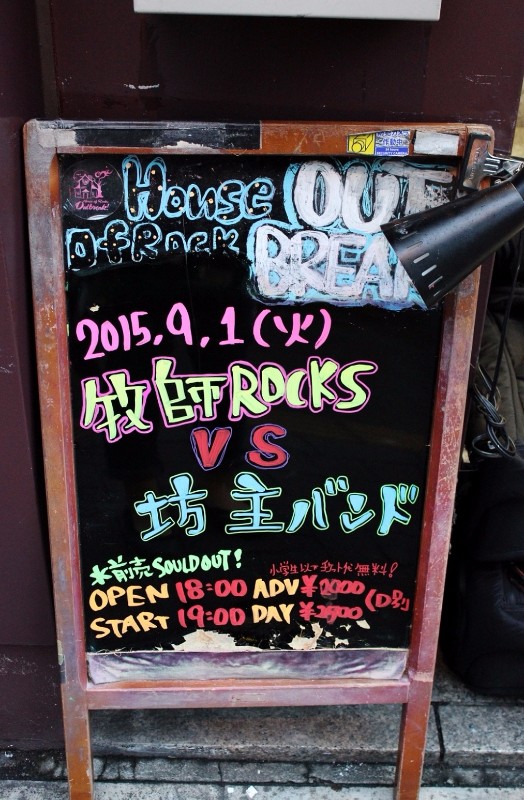 House OUT
Of Rock BREAK
Outbreak!
2015.9.1(火)
牧師ROCKS
VS
坊主バンド
*前売SOULDOUT!
小学生以下チケット代無料!
OPEN 18:00 ADV ¥2000
START 19:00 DAY ¥2500 (D別